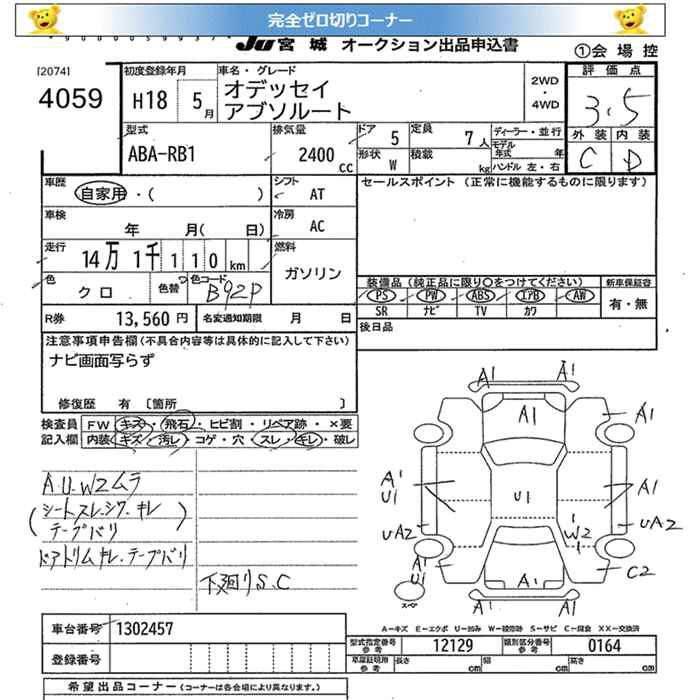 完全ゼロ切りコーナー
Ju宮城 オークション出品申込書
①会場控
[2074]
4059
初度登録年月
H18 5月
車名・グレード
オデッセイ
アブソルート
2WD
・
4WD
評価点
3.5
外装 内装
C D
型式
ABA-RB1
排気量
2400cc
ドア 5
定員 7人
ディーラー・並行
形状 W
積載 kg
モデル年式 年
ハンドル 左・右
車歴
自家用・( )
シフト
AT
セールスポイント (正常に機能するものに限ります)
車検
年 月( 日)
冷房
AC
走行
14万 1千 1 1 0 km
燃料
ガソリン
色
クロ
色替
色コード
B92P
装備品 (純正品に限り○をつけてください)
新車保証書
PS PW ABS エアB AW
有・無
SR ナビ TV カワ
R券 13,560円
名変通知期限 月 日
後日品
注意事項申告欄(不具合内容等は具体的に記入して下さい)
ナビ画面写らず
修復歴 有 〔箇所 〕
検査員
記入欄
FW キズ・飛石・ヒビ割・リペア跡・×要
内装 キズ・汚レ・コゲ・穴・スレ・キレ・破レ
A.U.W2ムラ
(シートスレ.シワ.キレ
テープバリ)
ドアトリムキレ.テープバリ
下廻りS.C
A1 A1
A1 A1
A1
U1
A1
U1
UA2
UA2
W2
A1
U1
C2
A1
A1 A1
スペア
A−キズ E−エクボ U−凹み W−線修跡 S−サビ C−腐食 XX−交換済
車台番号 1302457
型式指定番号 参考 12129
類別区分番号 参考 0164
登録番号
車庫証明用 参考
長さ cm 幅 cm 高さ cm
希望出品コーナー (コーナーは各会場により異なります。)